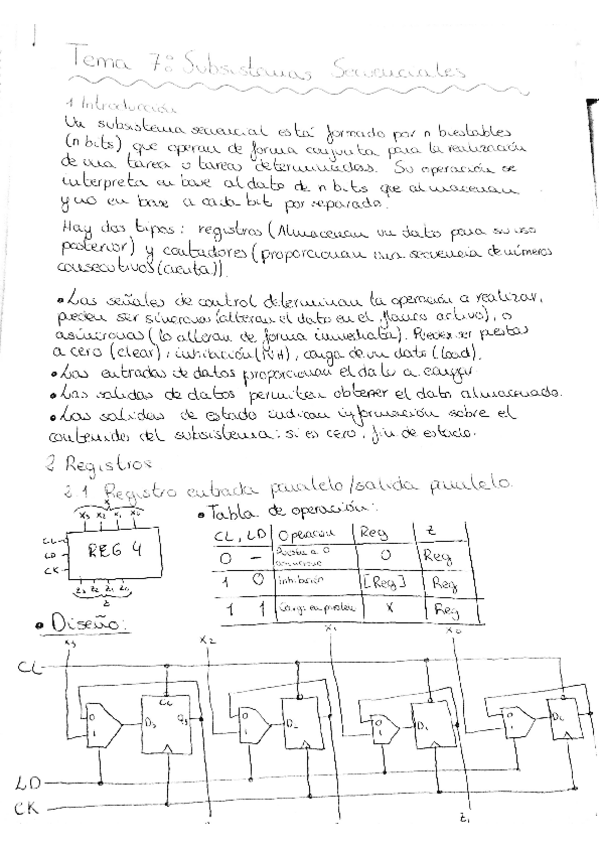 Tema 7: Subsistemas Secuenciales
1 Introducción
Un subsistema secuencial está formado por n biestables
(n bits) que operan de forma conjunta para la realización
de una tarea o tareas determinadas. Su operación se
interpreta en base al dato de n bits que almacenan
y no en base a cada bit por separado.
Hay dos tipos: registros (Almacenan un dato para su uso
posterior) y contadores (proporcionan una secuencia de números
consecutivos (cuenta)).
• Las señales de control determinan la operación a realizar,
pueden ser síncronas (alteran el dato en el flanco activo), o
asíncronas (lo alteran de forma inmediata). Pueden ser puestas
a cero (clear), inhibición, carga de un dato (load).
• Las entradas de datos proporcionan el dato a cargar
• Las salidas de datos permiten obtener el dato almacenado.
• Las salidas de estado indican información sobre el
contenido del subsistema: si es cero, fin de estado.
2 Registros
2.1 Registro entrada paralelo/salida paralelo.
x
x3 x2 x1 x0
CL
LD
CK
REG 4
z3 z2 z1 z0
z
• Tabla de operación:
CL, LD Operación Reg z
0 - Puesta a 0 asíncrona 0 Reg
1 0 inhibición [Reg] Reg
1 1 Carga en paralelo x Reg
• Diseño:
x3 x2 x1 x0
CL
CL
0 1 D3 q3 0 1 0 1 0 1
LD
CK
z1